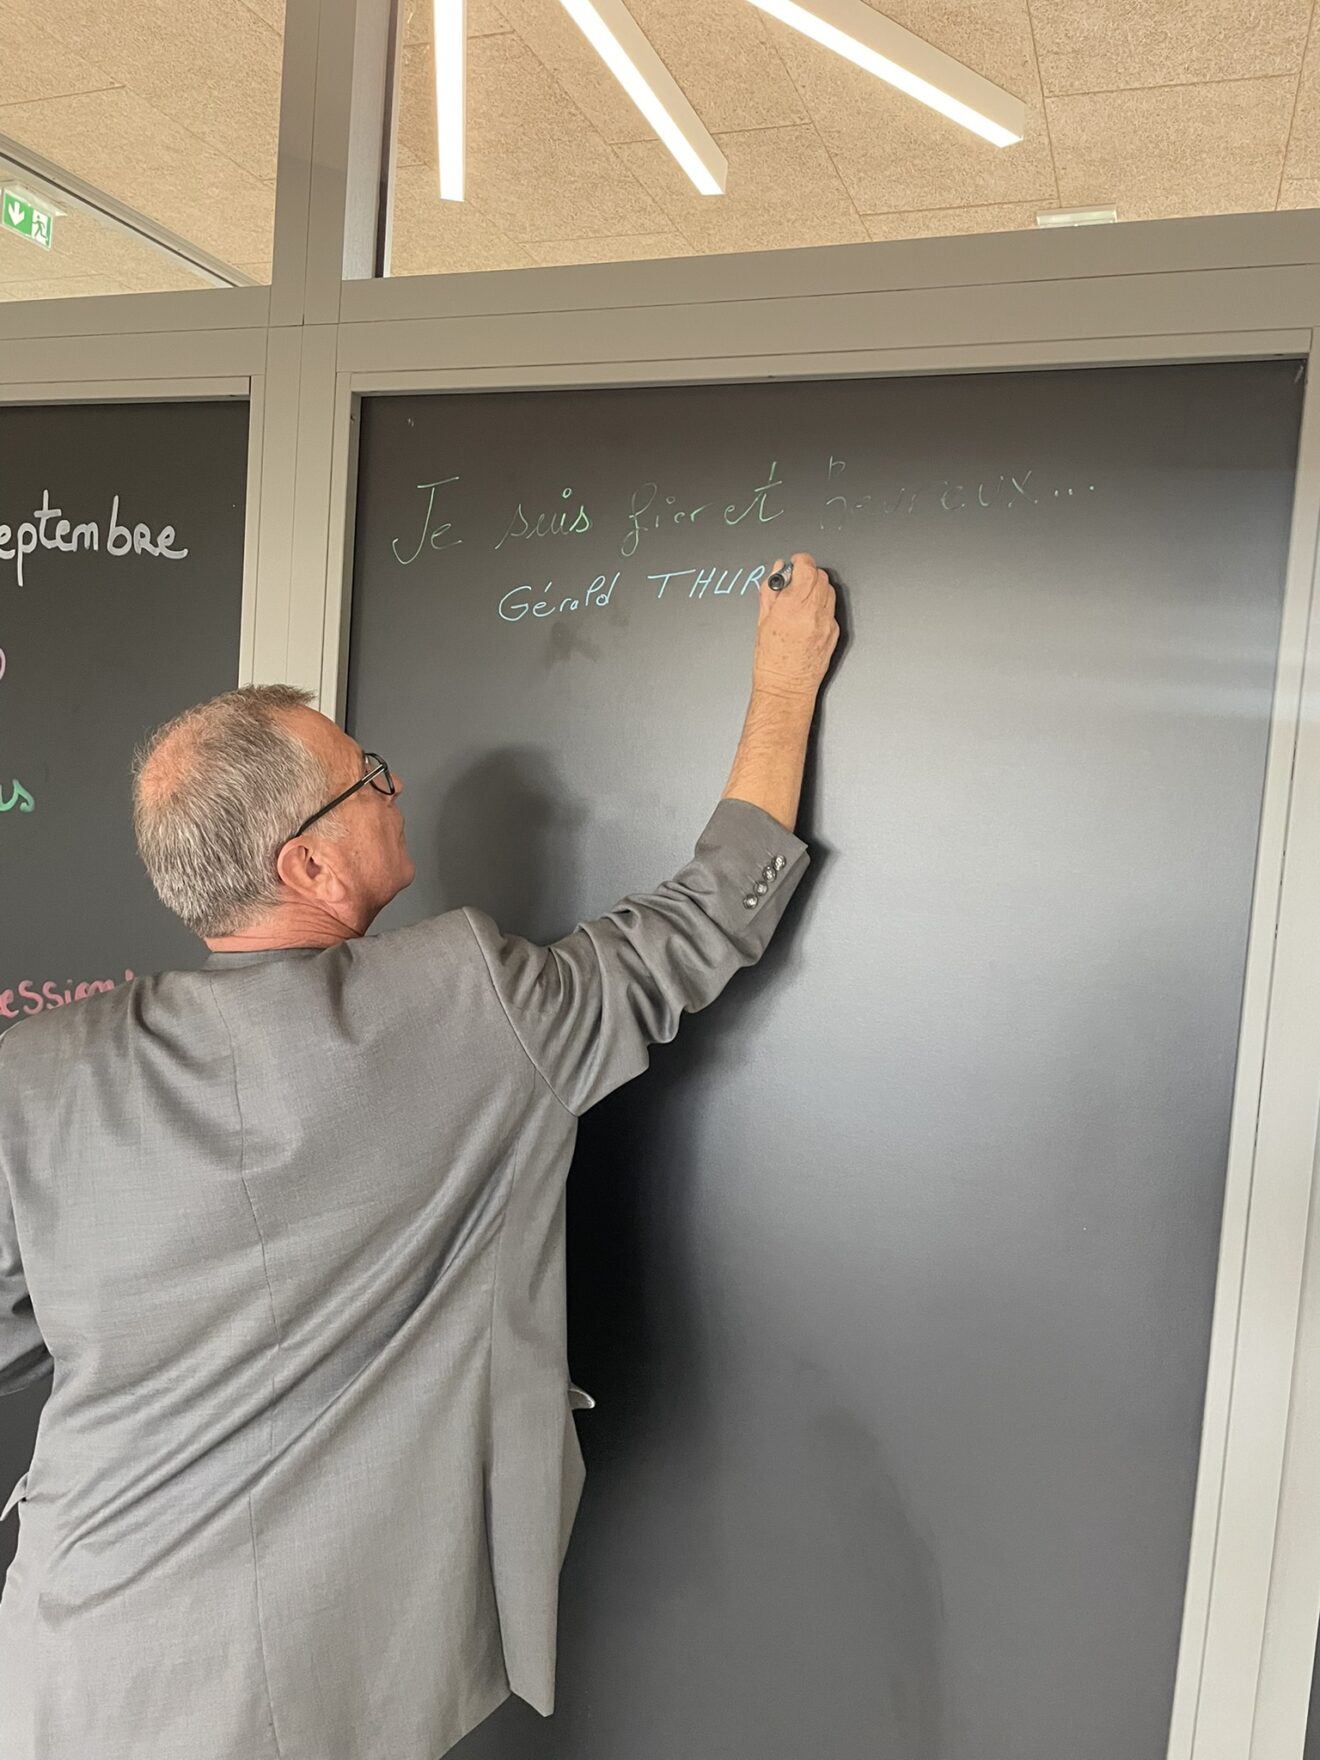 eptembre
us
ession
Je suis fier et heureux...
Gérald THUR